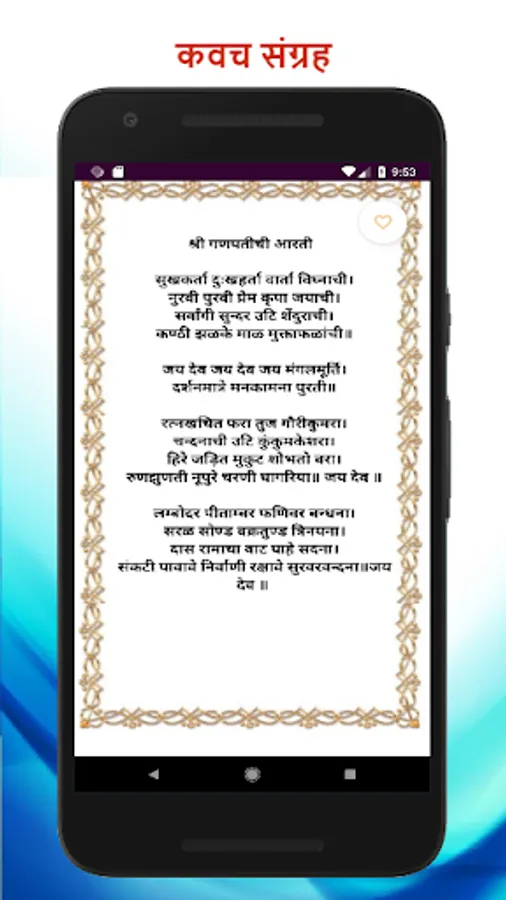 कवच संग्रह
9:53
श्री गणपतीची आरती
सुखकर्ता दुःखहर्ता वार्ता विघ्नाची।
नुरवी पुरवी प्रेम कृपा जयाची।
सर्वांगी सुन्दर उटि शेंदुराची।
कण्ठी झळके माळ मुक्ताफळांची॥
जय देव जय देव जय मंगलमूर्ति।
दर्शनमात्रे मनकामना पुरती॥
रत्नखचित फरा तुज गौरीकुमरा।
चन्दनाची उटि कुंकुमकेशरा।
हिरे जड़ित मुकुट शोभतो बरा।
रुणझुणती नूपुरे चरणी घागरिया॥ जय देव ॥
लम्बोदर पीताम्बर फणिवर बन्धना।
सरळ सोण्ड वक्रतुण्ड त्रिनयना।
दास रामाचा वाट पाहे सदना।
संकटी पावावे निर्वाणी रक्षावे सुरवरवन्दना॥जय
देव ॥